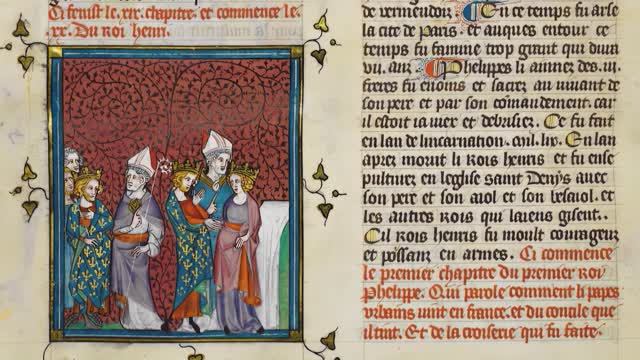 Ci fenist le .xix. chapitre et commence le
.xx. Du Roi henri.
de vermendois
En ce temps fu arse
la cite de Paris. et auques entour ce
temps fu famine trop grant qui dura
.vii. anz
Phelippes li ainnez des .iii.
freres fu enoinz et sacrez au viuant de
son pere et par son comandement. car
il estoit ia viex et debrisiez. Ce fu fait
en lan de lincarnation. mil. lix. En lan
apres morut li Rois henris et fu ense
pulturez en leglise saint Denys auec
son pere et son aiol et son besaiol. et
les autres Rois qui laiens gisent.
Cil Rois henris fu moult courageux
et poissanz en armes. Ci commence
le premier chapitre du premier Roy
Phelippe. Qui parole comment li papes
urbains uint en france. et du concile que
il tint. Et de la croiserie qui fu faite.